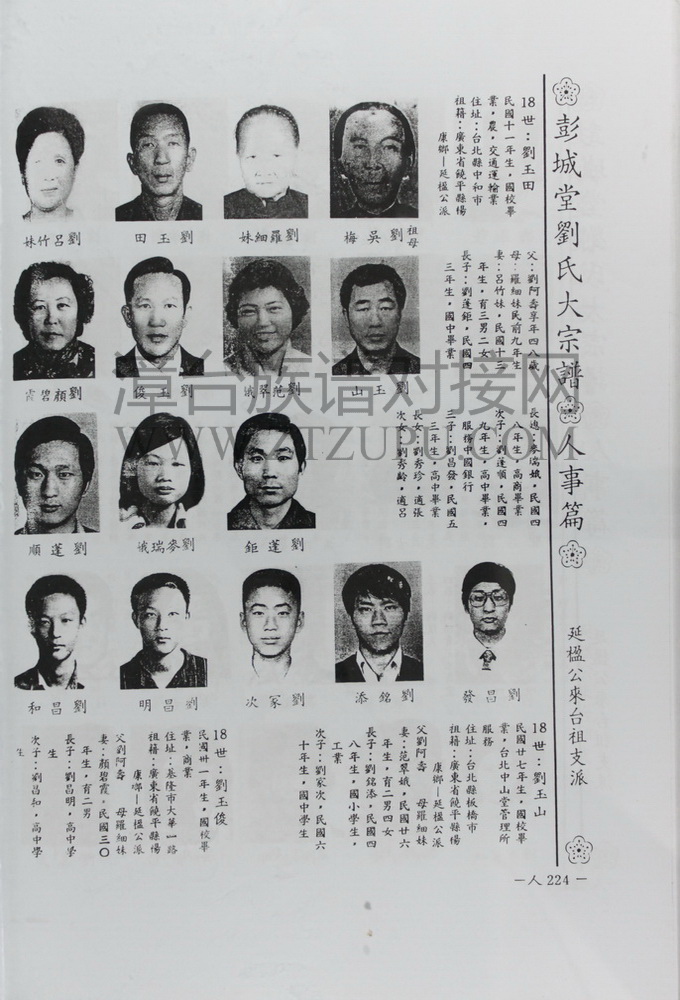 彭城堂劉氏大宗譜
人事篇
延楹公來台祖支派
－人 224－
18世：劉玉田
民國十一年生，國校畢
業，農，交通運輸業
住址：台北縣中和市
祖籍：廣東省饒平縣楊
康鄉—延楹公派
父：劉阿壽享年四八歲
母：羅細妹民前九年生
妻：呂竹妹，民國十三
年生，有三男二女
長子：劉蓬鉅，民國四
三年生，國中畢業
長媳：麥瑞娥，民國四
八年生，高商畢業
次子：劉蓬順，民國四
九年生，高中畢業，
服務中國銀行
三子：劉昌發，民國五
三年生，高中畢業
長女：劉秀珍，適張
次女：劉秀齡，適呂
祖母
劉吳梅
劉羅細妹
劉玉田
劉呂竹妹
劉玉山
劉范翠娥
劉玉俊
劉顏碧霞
劉蓬鉅
劉麥瑞娥
劉蓬順
劉昌發
劉銘添
劉家次
劉昌明
劉昌和
18世：劉玉山
民國廿七年生，國校畢
業，台北中山堂管理所
服務
住址：台北縣板橋市
祖籍：廣東省饒平縣楊
康鄉—延楹公派
父劉阿壽 母羅細妹
妻：范翠娥，民國廿六
年生，有二男四女
長子：劉銘添，民國四
八年生，國小學生，
工業
次子：劉家次，民國六
十年生，國中學生
18世：劉玉俊
民國卅一年生，國校畢
業，商業
住址：基隆市大華一路
祖籍：廣東省饒平縣楊
康鄉—延楹公派
父劉阿壽 母羅細妹
妻：顏碧霞，民國三〇
年生，有二男
長子：劉昌明，高中學
生
次子：劉昌和，高中學
生
漳台族谱对接网
WWW.ZTZUPU.COM